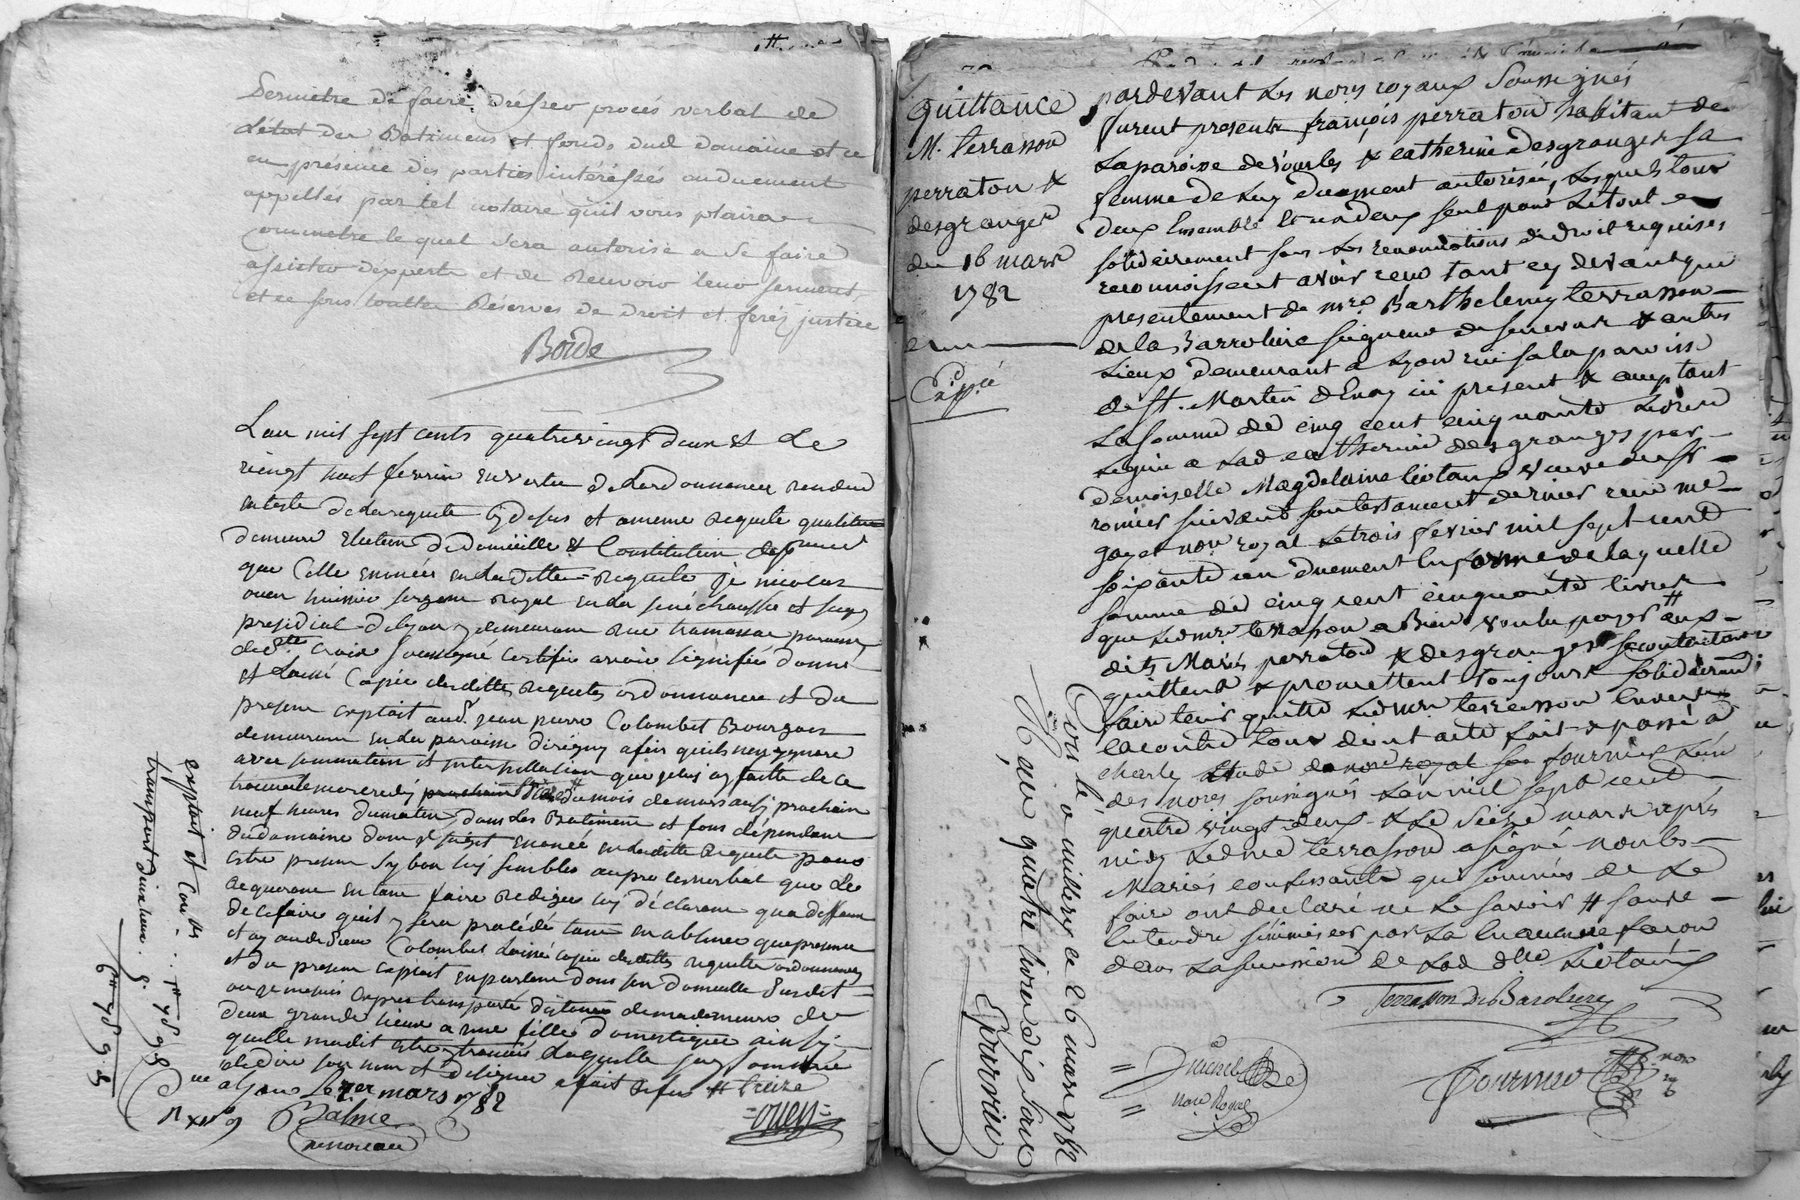 permettre de faire dresser procés verbal de
L'état des Batimens et fonds dud. domaine et ce
en presence des parties intéréssés ou duement
appellés par tel notaire qu'il vous plaira
commettre le quel sera autorisé a se faire
assister d'experts et de recevoir leur serment,
et ce sous touttes Réserves de droit et feréz justice
Borde
L'an mil sept cents quatrevingt deux & Le
vingt huit fevrier en vertu de L'ordonnance rendue
en teste de la requete cy dessus et a meme requete qualité
demeure Election de Domicille & Constitution de
que Celle enoncées en laditte requete je nicolas
ouen huissier sergent Royal en la sénéchaussée et siege
presidial de lyon y demeurant rue tramassac paroisse
de Ste Croix soussigné certifie avoir signiffié donné
et Laissé Copie desdittes requetes ordonnance et du
present exploit aud. sr jean pierre Colombet Bourgeois
demeurant en la paroisse d'irigny afin qu'ils n'en ignore
avec sommation et interpellation que de
trouver le mercredy prochain du mois de mars aussy prochain
neuf heures du matin dans Les Batiment et fons dépendant
du domaine dont s'agit enoncé en laditte Requete pour
estre present sy bon luy semble au procès verbal que Le
Requerant entend faire rediger luy déclarant qu'a deffaut
de ce faire qu'il y sera procédé tant en absence que presence
et ay audit sieur Colombet Laissé copie desdittes requette ordonnances
et du present exploit en parlant dans son domicille susdit
ou je me suis exprès transporté distance de ma demeure de
deux grande lieue a une fille domestique ainsy
qu'elle m'a dit estre trouvée Laquelle sommée
de dire son nom et de signer a fait refus # treize
a Lyon Le 1er mars 1782
Balme
=ouen=
exploit et Copies
transport
quittance
M. terrasson
perraton &
desgranges
du 16 mars
1782
Expé
pardevant Les nores royaux Soussignés
furent presents françois perraton habitant de
La paroisse de vourles & catherine desgranges sa
femme de Luy duement autorisée, Lesquels tous
deux Ensemble Et un deux seul pour Le tout
solidairement sous Les renonciations de droit requises
reconnoissent avoir reçu tant cy devant que
presentement de mre Barthelemy terrasson
de la Barroliere seigneur de senevas & autres
Lieux demeurant a Lyon rue sala paroisse
de st. Martin d'Enay ici present & acceptant
La somme de cinq cent cinquante Livres
Leguée a Lad. catherine desgranges par
demoiselle Magdelaine Liotaud veuve du sr
romier suivant son testament dernier reçu me
gayet nore royal Le trois fevrier mil sept cent
soixante un duement En forme de laquelle
somme de cinq cent cinquante livres
que Ledmre terrasson a Bien voulu payer aux
dits Mariés perraton & desgranges #
quittent & promettent toujours solidairement
faire tenir quitte Ledmre terrasson Envers &
contre tous dont acte fait & passé a
charly Etude de nore royal fournier L'un
des nores soussignés L'an mil sept cent
quatre vingt deux & Le seize mars après
midy Ledmre terrasson a signé non les
Mariés confessants qui sommés de Le
faire ont declaré ne Le savoir # sans
Entendre s'immiscer par La En aucune façon
dans La succession de Lad. dlle Liotaud
Terrasson De Baroliere
Michel
nore Royal
fournier
nore
Conlé a millery ce 26 mars 1782
Reçu quatre livres dix sous
Eparvier